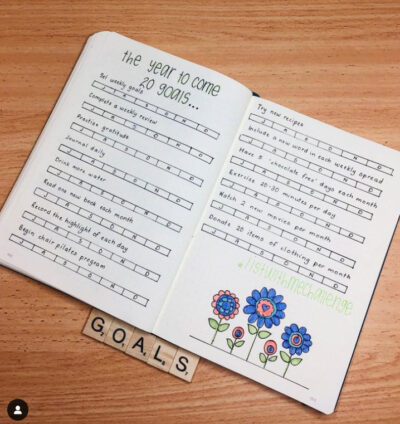 the year to come
20 goals...
Set weekly goals
J A S O N D
Complete a weekly review
J A S O N D
Practice gratitude
J A S O N D
Journal daily
J A S O N D
Drink more water
J A S O N D
Read one new book each month
J A S O N D
Record the highlight of each day
J A S O N D
Begin chair pilates program
J A S O N D
Try new recipes
J A S O N D
Include a new word in each weekly spread
J A S O N D
Have 5 'chocolate free' days each month
J A S O N D
Exercise 20-30 minutes per day
J A S O N D
Watch 2 new movies per month
J A S O N D
Donate 20 items of clothing per month
J A S O N D
#listwithmechallenge
GOALS